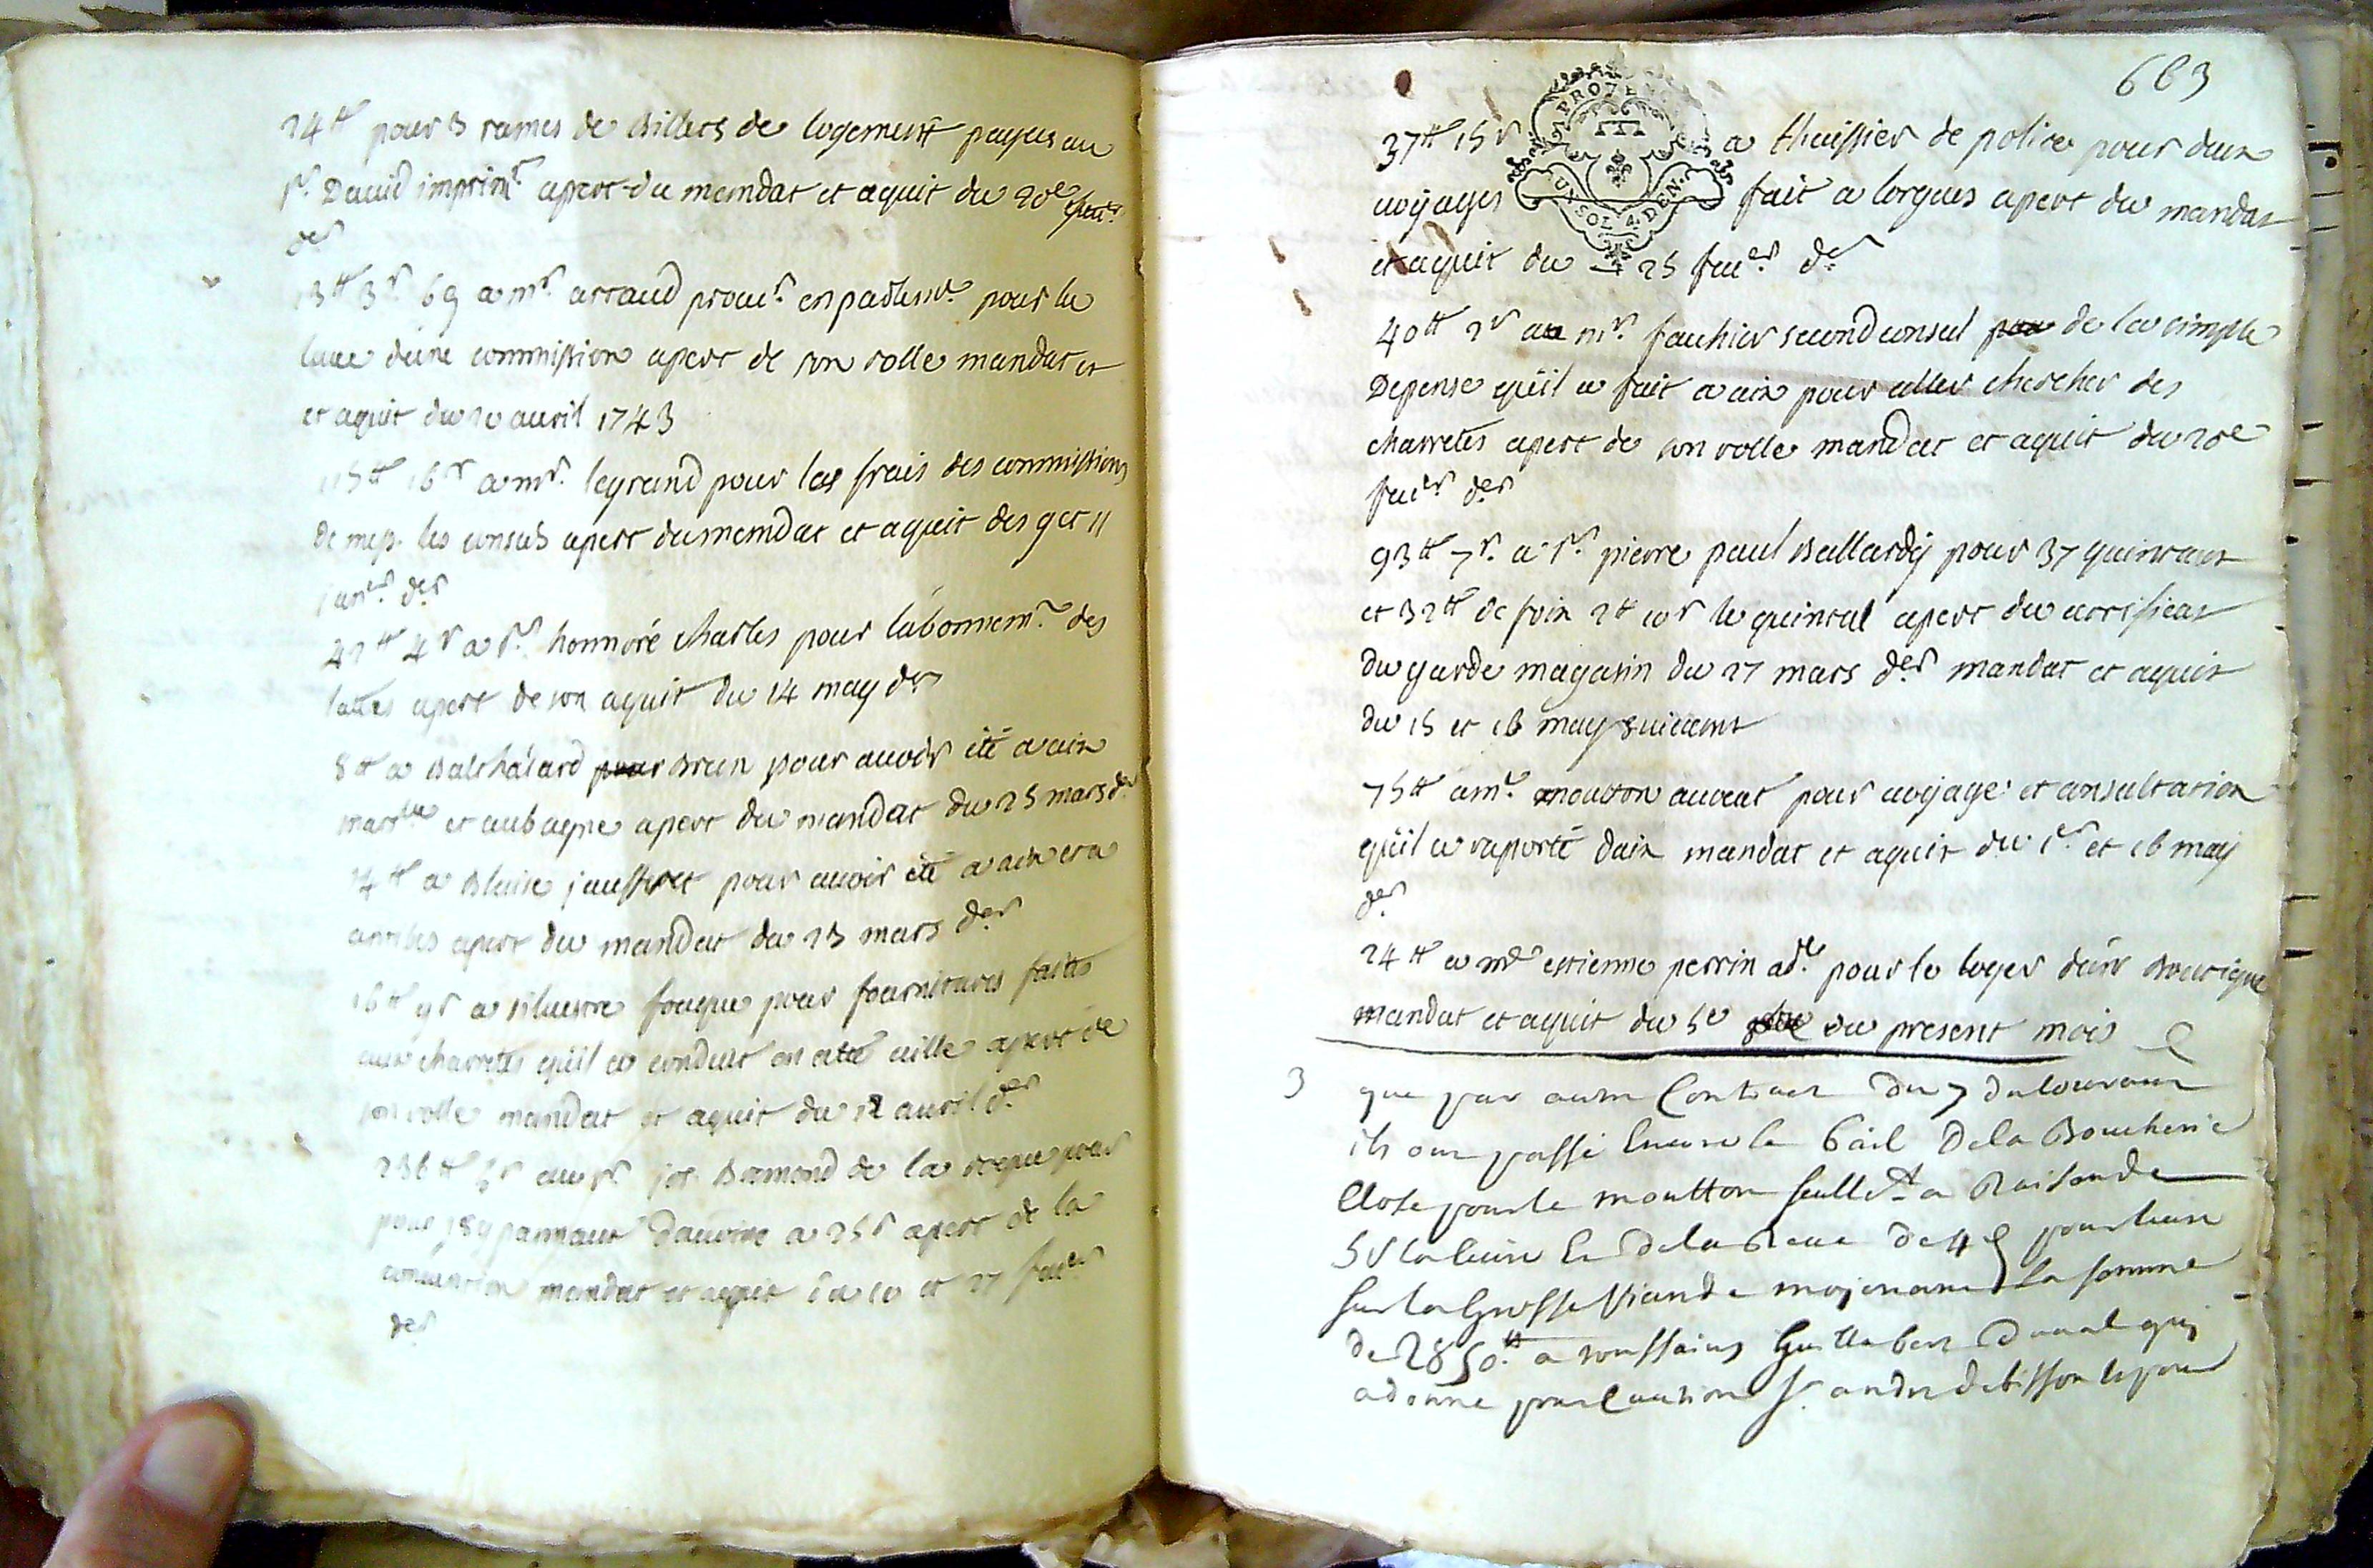 24tt pour 3 rames de Billets de logement payes au
sr. David imprimr. apert du mandat et aquit du 20e feur.
der
13tt 3s 6d a mr. arraud procr. en parlemt. pour la
leuee deune commission apert de son rolle mandat et
et aquit du 20 auril 1743
115tt 16s a mr. legrand pour les frais des commissions
de mess. les consuls apert du mandat et aquit des 9 et 11
janer. der
42tt 4s a sr. honnoré charles pour labonnemt. des
lattes apert de son aquit du 14 may der
8tt a Balthalard Brun pour auoir été a aix
marlle et aubagne apert du mandat du 25 mars der
14tt a Blaise jauffret pour auoir été a aix et a
antibes apert du mandat du 23 mars der
16tt 9s a siluestre fouque pour fournitures faites
aux charretes quil a conduit en cette uille apert de
son rolle mandat et aquit du 12 auril der
236tt 5s au sr. jos. Bremond de la pour
pour 189 pannaux dauoine a 25s apert de la
conuention mandat et aquit du 10 et 27 feuer
der
663
PROVENCE
UN SOL 4 DEN.
37tt 15s a thuissier de police pour deux
uoyages fait a lorgues apert du mandat
et aquit du 25 feuer. dr
40tt 2s a mr. fauchier second consul de la simple
Depense quil a fait a aix pour aller chercher des
charretes apert de son rolle mandat et aquit du 20e
feuer. der
93tt 7s. a sr. pierre paul Ballardy pour 37 quintaux
et 32tt de foin 2tt 10s le quintal apert du certificat
du garde magasin du 27 mars der mandat et aquit
du 15 et 16 may suiuant
75tt a mr. moutton auocat pour uoyage et consultation
quil a raporté daix mandat et aquit du 1er et 16 may
der
24tt a md estienne perrin adl. pour le loyer deune Boutique
mandat et aquit du 5e du present mois
3 que par autre Contract du 7 du Courant
ils ont passé Encore le bail de la Boucherie
Close pour le moutton seullet. a Raison de
5s la liure Et de la Reue de 4d pour liure
sur la Grosse Viande moyenant la somme
de 2850tt. a toussains Guillabert Duual qui
a donné pour Caution sr. andre debisson le pour